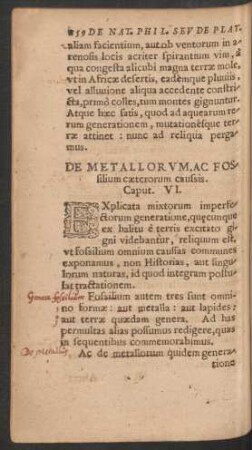 259 DE NAT. PHIL. SEV DE PLAT.
aliam facientium, aut ob ventorum in a-
renosis locis acriter spirantium vim, a
qua congesta alicubi magna terræ mole,
vt in Africæ desertis, eadémque pluuiis,
vel alluuione aliqua accedente constri-
cta, primò colles, tum montes gignuntur.
Atque hæc satis, quod ad aquearum re-
rum generationem, mutationésque ter-
ræ attinet: nunc ad reliqua perga-
mus.
DE METALLORVM, AC FOS-
silium cæterorum caussis.
Caput. VI.
EXplicata mixtorum imperfe-
ctorum generatione, quæcunque
ex halitu è terris excitato gi-
gni videbantur, reliquum est,
vt fossilium omnium caussas communes
exponamus, non Historias, aut singu-
lorum naturas, id quod integram postu-
lat tractationem.
Genera fossilium Fossilium autem tres sunt omni-
no formæ: aut metalla: aut lapides:
aut terræ quædam genera. Ad has
permultas alias possumus redigere, quas
in sequentibus commemorabimus.
De metallis Ac de metallorum quidem genera-
tione